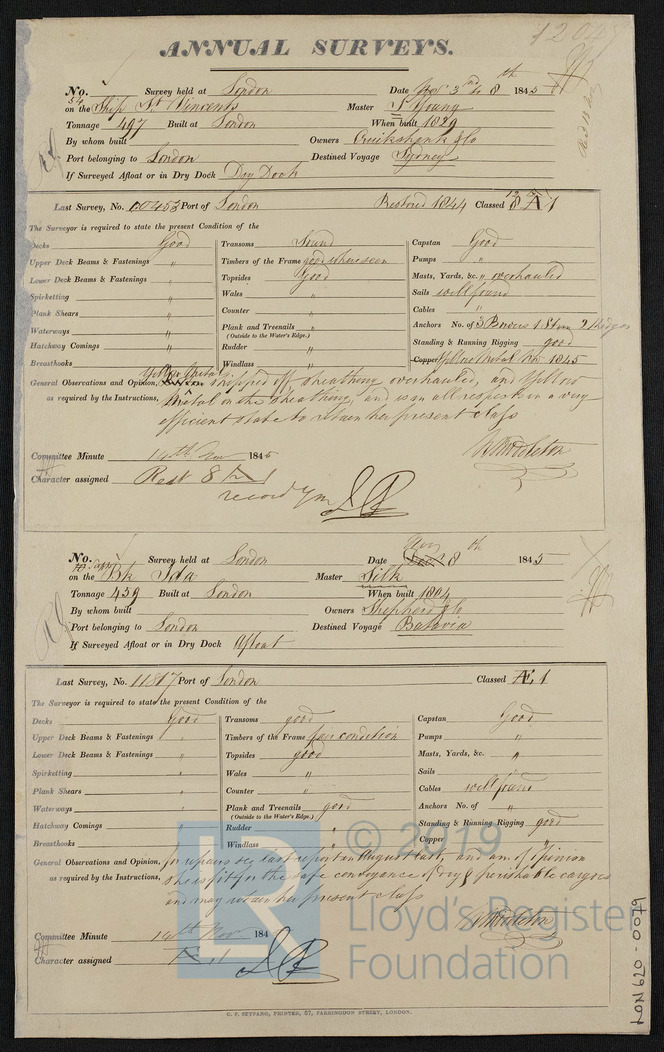 ANNUAL SURVEYS.
No. Survey held at London Date Nov 3rd to 8th 1845
on the Ship St Vincents Master J. Young
Tonnage 497 Built at London When built 1829
By whom built Owners Cruikshank & Co
Port belonging to London Destined Voyage Sydney
If Surveyed Afloat or in Dry Dock Dry Dock
Last Survey, No. Port of London Restored 1844 Classed 1
The Surveyor is required to state the present Condition of the
Decks Good Transoms Sound Capstan Good
Upper Deck Beams & Fastenings " Timbers of the Frame good where seen Pumps "
Lower Deck Beams & Fastenings " Topsides Good Masts, Yards, &c. " overhauled
Spirketting " Wales " Sails well found
Plank Shears " Counter " Cables "
Waterways " Plank and Treenails " Anchors No. of 3 Bowers 1 Stm 2 Kedges
(Outside to the Water's Edge.)
Hatchway Comings " Rudder " Standing & Running Rigging good
Breasthooks " Windlass " Copper Yellow Metal 1845
Yellow Metal
General Observations and Opinion, stripped off, sheathing overhauled, and Yellow
as required by the Instructions, Metal on the sheathing, and is in all respects in a very
efficient state to retain her present class
Committee Minute 14th Nov 1845
Character assigned Rest 8 A 1
record ym
No. Survey held at London Date Nov 8th 1845
on the Bk Ida Master Silk
Tonnage 439 Built at London When built 1804
By whom built Owners Shepherd & Co
Port belonging to London Destined Voyage Batavia
If Surveyed Afloat or in Dry Dock Afloat
Last Survey, No. 11817 Port of London Classed Æ 1
The Surveyor is required to state the present Condition of the
Decks Good Transoms good Capstan Good
Upper Deck Beams & Fastenings " Timbers of the Frame fair condition Pumps "
Lower Deck Beams & Fastenings " Topsides good Masts, Yards, &c. "
Spirketting " Wales " Sails "
Plank Shears " Counter " Cables well found
Waterways " Plank and Treenails good Anchors No. of "
(Outside to the Water's Edge.)
Hatchway Comings " Rudder " Standing & Running Rigging good
Breasthooks " Windlass " Copper "
General Observations and Opinion, for repairs see last report in August last, and am of opinion
as required by the Instructions, she is fit for the safe conveyance of dry & perishable cargoes
and may retain her present class
Committee Minute 14th Nov 184
Character assigned Æ 1
© 2019
Lloyd's Register
Foundation
LON 620-0079
G. F. SEYFANG, PRINTER, 57, FARRINGDON STREET, LONDON.